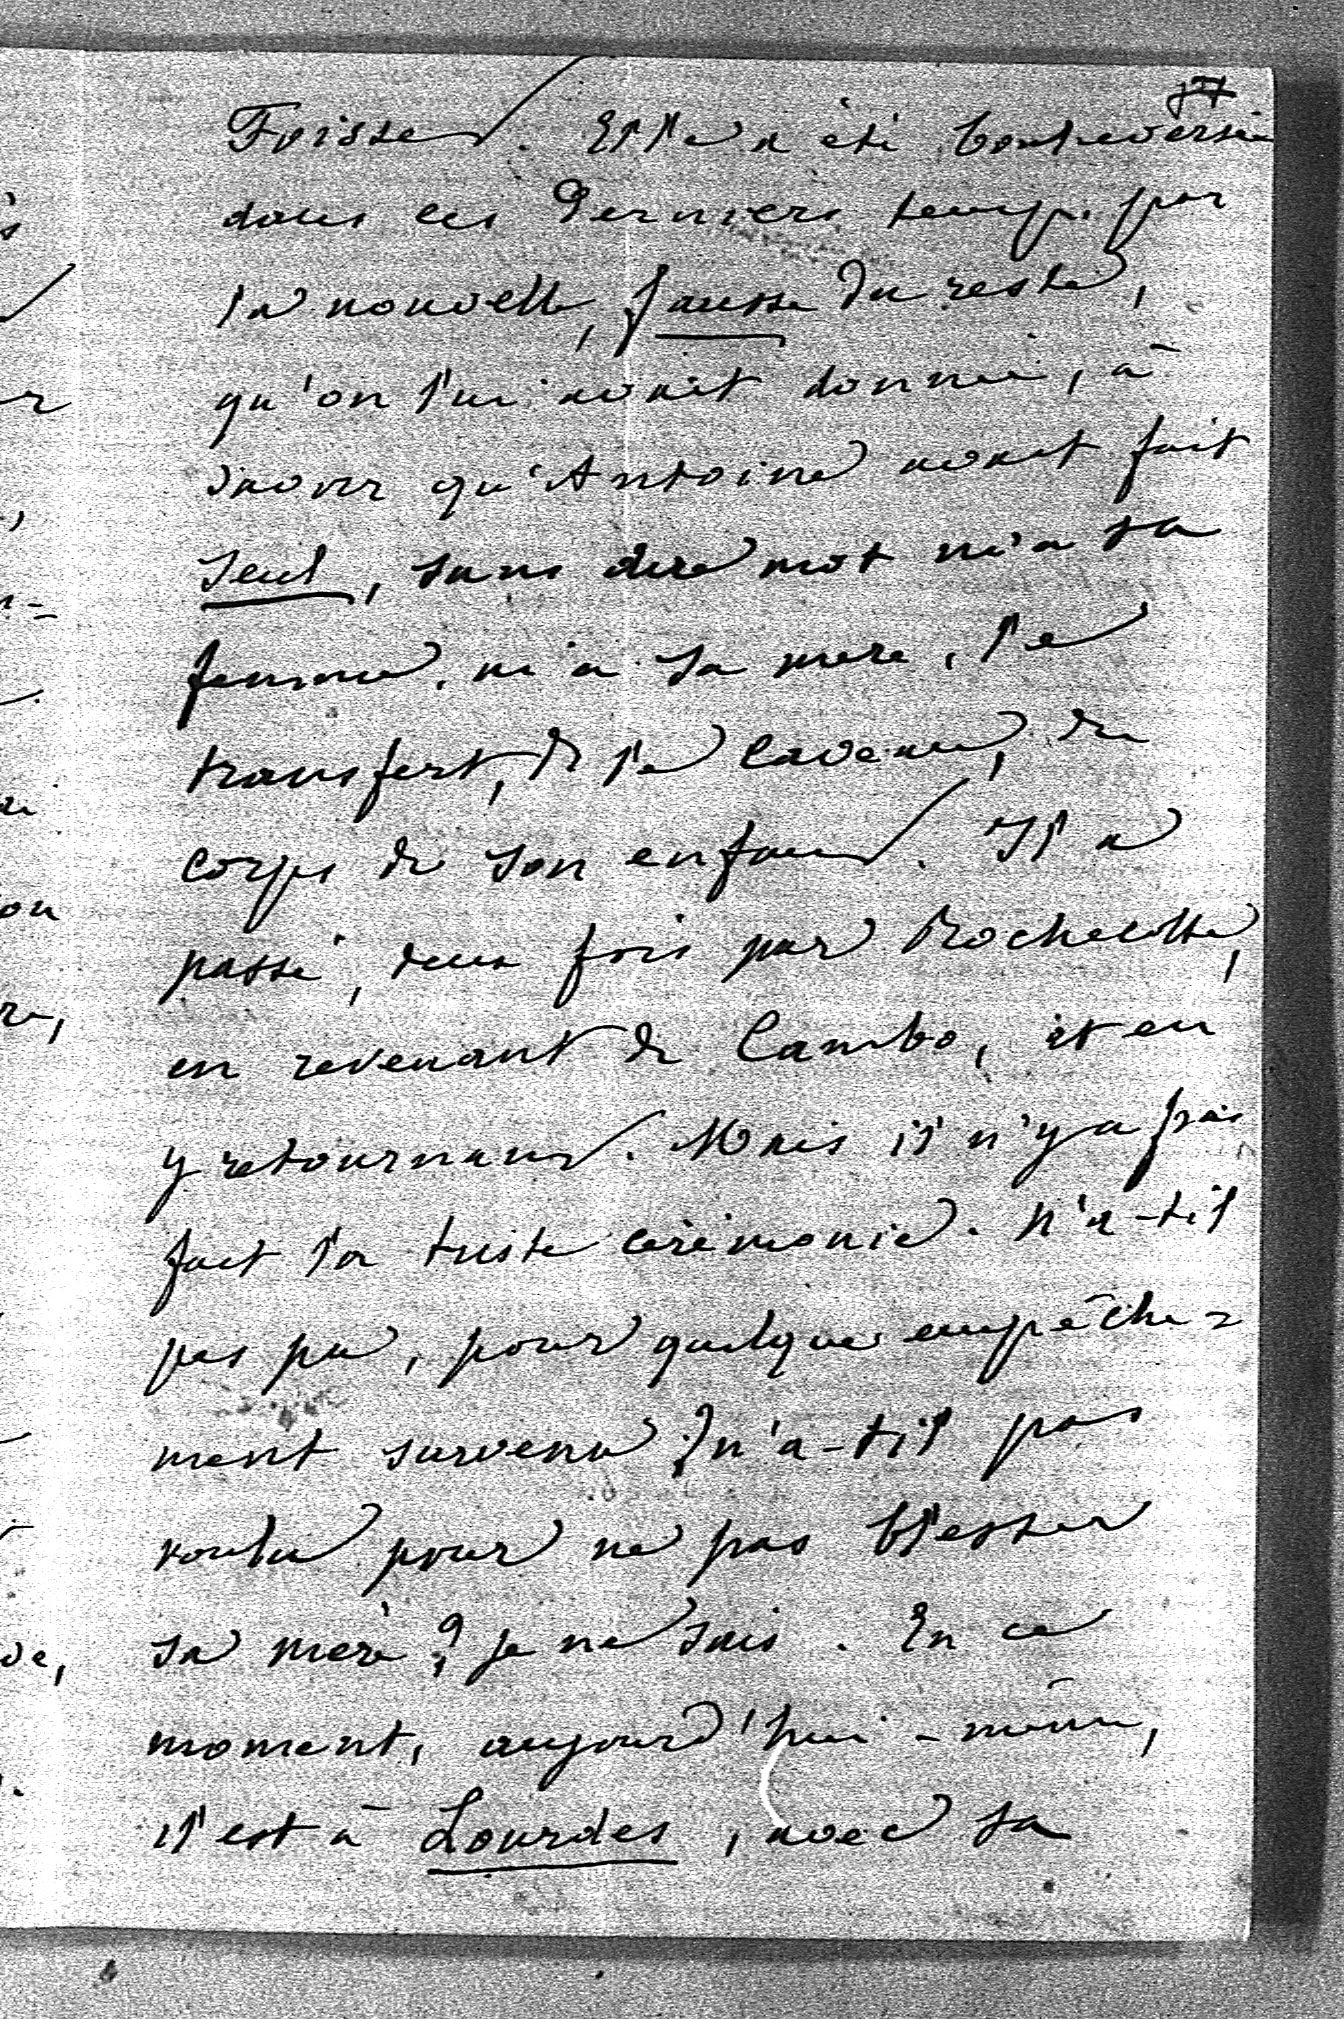 Elle a été bouleversée
dans ces derniers temps par
la nouvelle, fausse du reste,
qu'on lui avait donnée, à
savoir qu'Antoine avait fait
seul, sans dire mot ni à sa
femme, ni à sa mère, le
transfert, de le caveau, du
corps de son enfant. Il a
passé, deux fois par Rochecotte,
en revenant de Cambo, et en
y retournant. Mais il n'y a pas
fait la triste cérémonie. N'a-t-il
pas pu, pour quelque empêche=
ment survenu ? n'a-t-il pas
voulu pour ne pas blesser
sa mère ? je ne sais. En ce
moment, aujourd'hui-même,
il est à Lourdes, avec sa